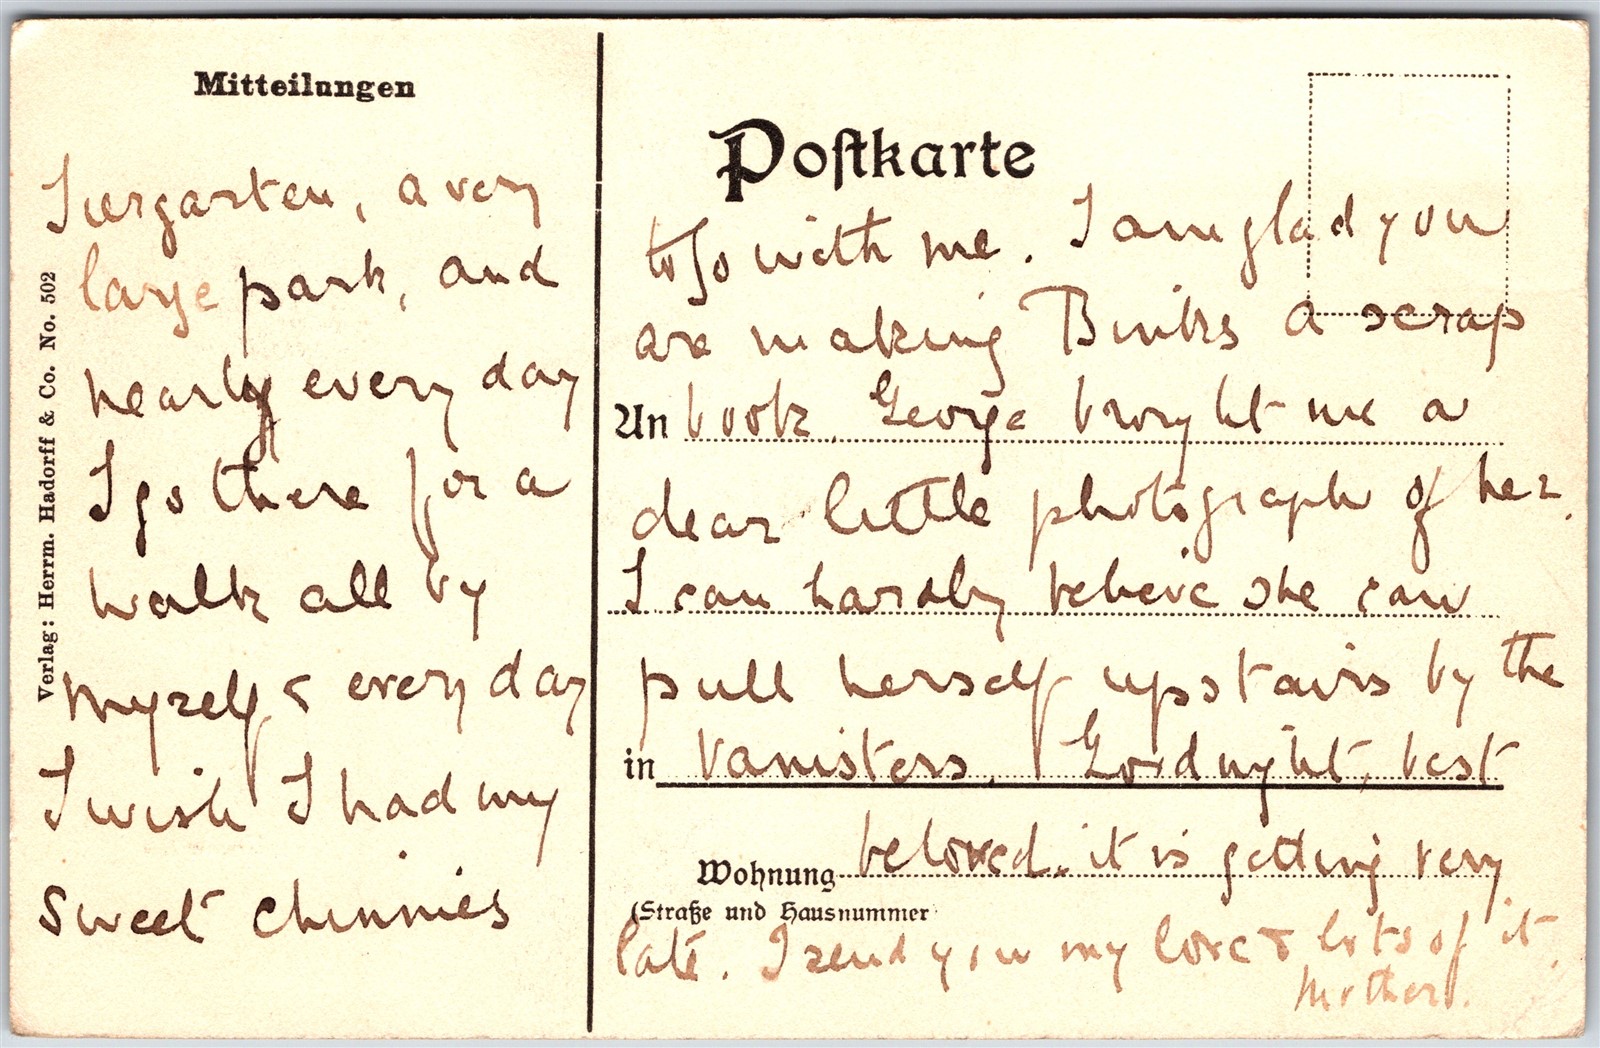 Mitteilungen
Tiergarten, a very
large park, and
nearly every day
I go there for a
walk all by
myself & every day
I wish I had my
sweet chinnies
Verlag: Herrm. Hadorff & Co. No. 502
Postkarte
to go with me. I am glad you
are making Binks a scrap
An book. George brought me a
dear little photograph of her.
I can hardly believe she can
pull herself upstairs by the
in banisters. Good night, best
Wohnung beloved. it is getting very
(Straße und Hausnummer
late. I send you my love & lots of it.
Mother.